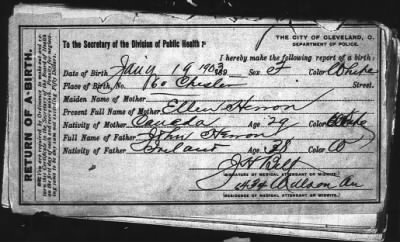 RETURN OF A BIRTH.
THE CITY OF CLEVELAND, O.
DEPARTMENT OF POLICE.
To the Secretary of the Division of Public Health:
I hereby make the following report of a birth:
Date of Birth, Jan'y 19 1903 189 Sex F Color White
Place of Birth, No. 160 Chester Street.
Maiden Name of Mother
Present Full Name of Mother Ellen Herron
Nativity of Mother Canada Age 29 Color White
Full Name of Father John Herron
Nativity of Father Ireland Age 38 Color W
SIGNATURE OF MEDICAL ATTENDANT OR MIDWIFE.
Wilson Av
RESIDENCE OF MEDICAL ATTENDANT OR MIDWIFE.